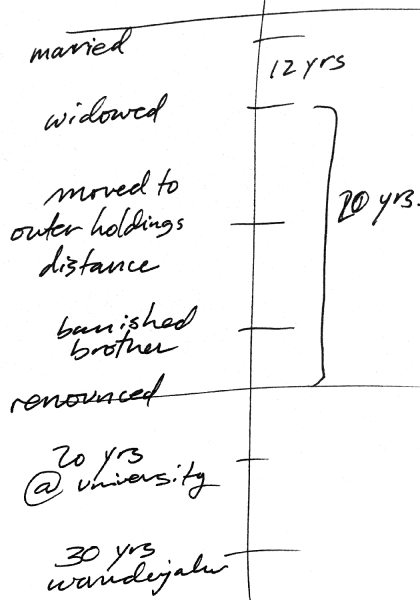 married
12 yrs
widowed
20 yrs.
moved to
outer holdings
distance
banished
brother
renounced
20 yrs
@ university
30 yrs
wanderjahr